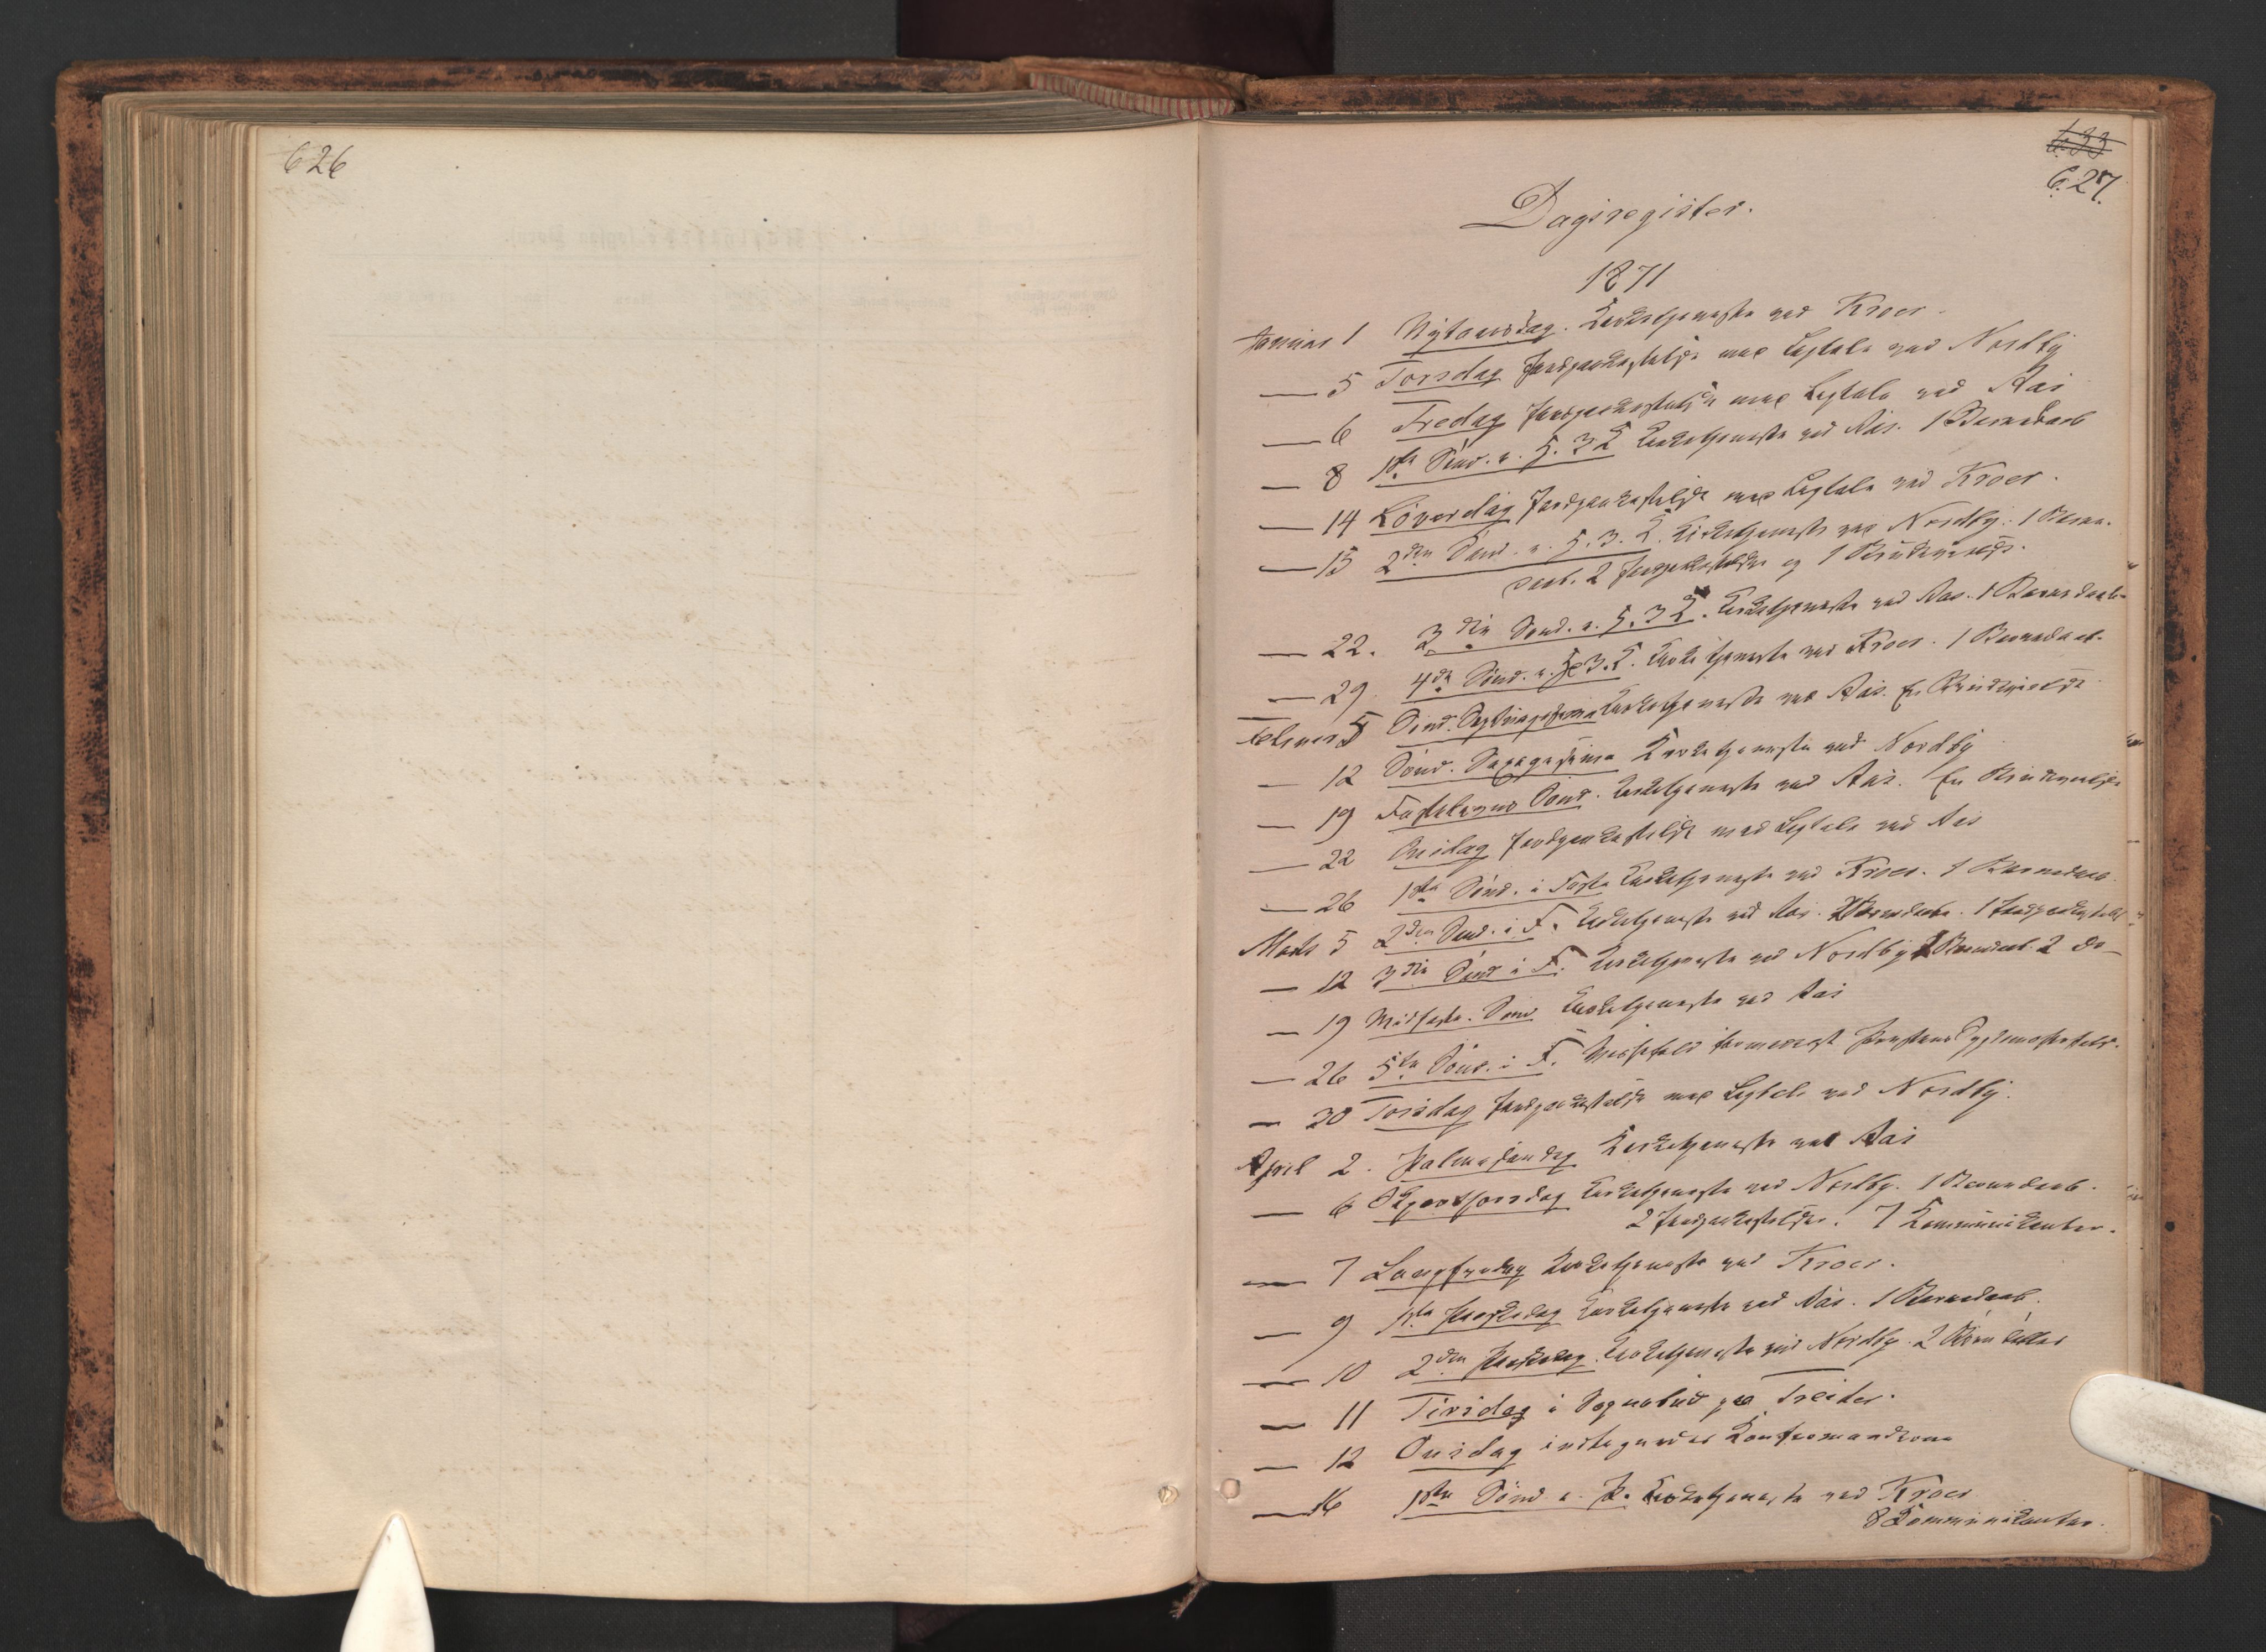 626
633
627.
Dagsregister.
1871
Januar 1 Nytaarsdag. Kirketjeneste ved Kroer.
— 5 Torsdag Jordpaakastelse med Ligtale ved Nordby
— 6 Fredag Jordpaakastelse med Ligtale ved Aas
— 8 1ste Sønd. e. H. 3 K Kirketjeneste ved Aas. 1 Barnedaab
— 14 Løverdag Jordpaakastelse med Ligtale ved Kroer.
— 15 2den Sønd. e. H. 3. K. Kirketjeneste ved Nordby. 1 Barne-
daab. 2 Jordpaakastelser og 1 Brudevielse.
— 22. 3die Sønd. e. H. 3 K. Kirketjeneste ved Aas. 1 Barnedaab.
— 29. 4de Sønd. e. H 3. K. Kirketjeneste ved Kroer. 1 Barnedaab.
Februar 5 Sønd. Septuagesima Kirketjeneste ved Aas. En Brudevielse
— 12 Sønd. Sexagesima Kirketjeneste ved Nordby
— 19 Fastelavns Sønd. Kirketjeneste ved Aas. En Brudevielse
— 22 Onsdag Jordpaakastelse med Ligtale ved Aas
— 26 1ste Sønd. i Faste Kirketjeneste ved Kroer. 1 Barnedaab.
Marts 5 2den Sønd. i F. Kirketjeneste ved Aas. 2 Barnedaab. 1 Jordpaakastelse
— 12 3die Sønd i F. Kirketjeneste ved Nordby 2 Barnedaab. 2 do —
— 19 Midfaste. Sønd. Kirketjeneste ved Aas
— 26 5te Sønd. i F. Messefald formedelst Præstens Sygdomsforfald.
— 30 Torsdag Jordpaakastelse med Ligtale ved Nordby.
April 2. Palmesøndag Kirketjeneste ved Aas
— 6 Skjærtorsdag Kirketjeneste ved Nordby. 1 Barnedaab.
2 Jordpaakastelser. 7 Kommunikanter.
— 7 Langfredag Kirketjeneste ved Kroer.
— 9 1ste Paaskedag Kirketjeneste ved Aas. 1 Barnedaab.
— 10 2den Paaskedag. Kirketjeneste ved Nordby. 2
— 11 Tirsdag i Sognebud paa Treider.
— 12 Onsdag Konfirmanderne
— 16 1ste Sønd e. P. Kirketjeneste ved Kroer
8 Kommunikanter.